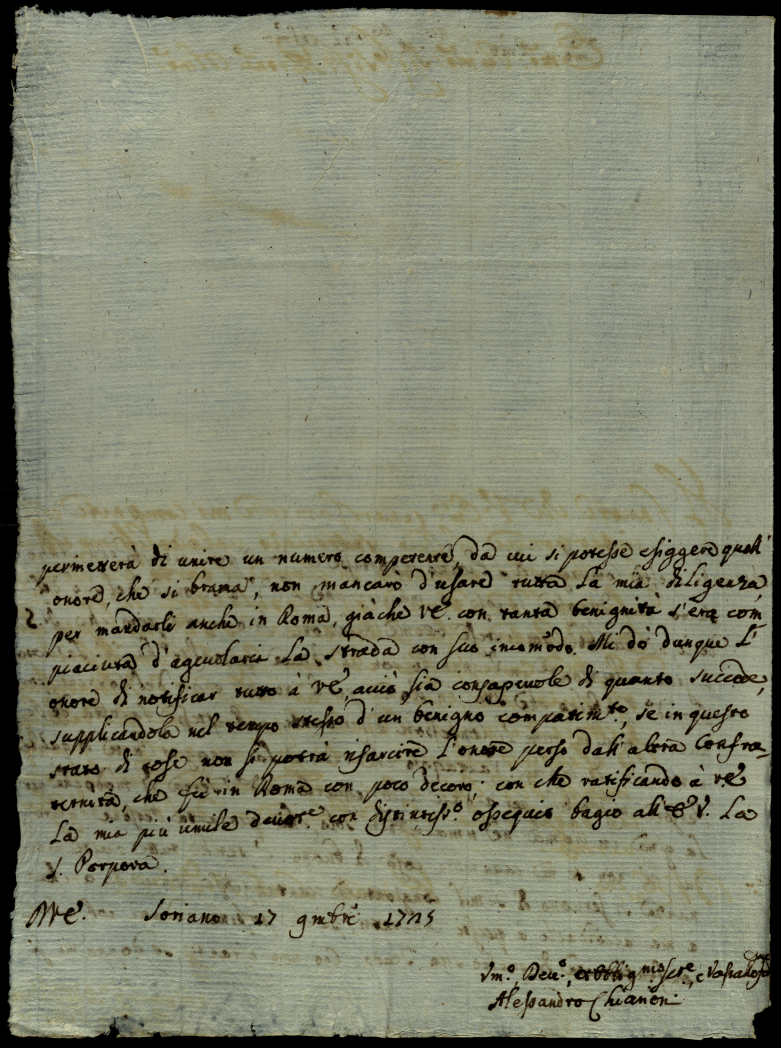 permetterà di unire un numero competente, da cui si potesse esiggere quell'
onore, che si brama, non mancarò d'usare tutta la mia diligenza
per mandarli anche in Roma, giàche VE. con tanta benignità s'era com-
piaciuta d'agevolarci la strada con suo incommodo. Mi dò dunque l'
onore di notificar tutto à VE, acciò sia consapevole di quanto succede,
supplicandola nel tempo stesso d'un benigno compatim.to, se in questo
stato di cose non si potrà risarcire l'onore perso dall'altra Confra-
ternità, che fù in Roma con poco decoro; con che ratificando à VE
la mia più umile devoz.e con distintiss.o ossequio bagio all'E V. la
S. Porpora.
DVE. Soriano 17 9mbre 1725
Vm.o, Dev.o, et Obblig.mo Ser.e, e Vassallo
Alessandro Chianeri